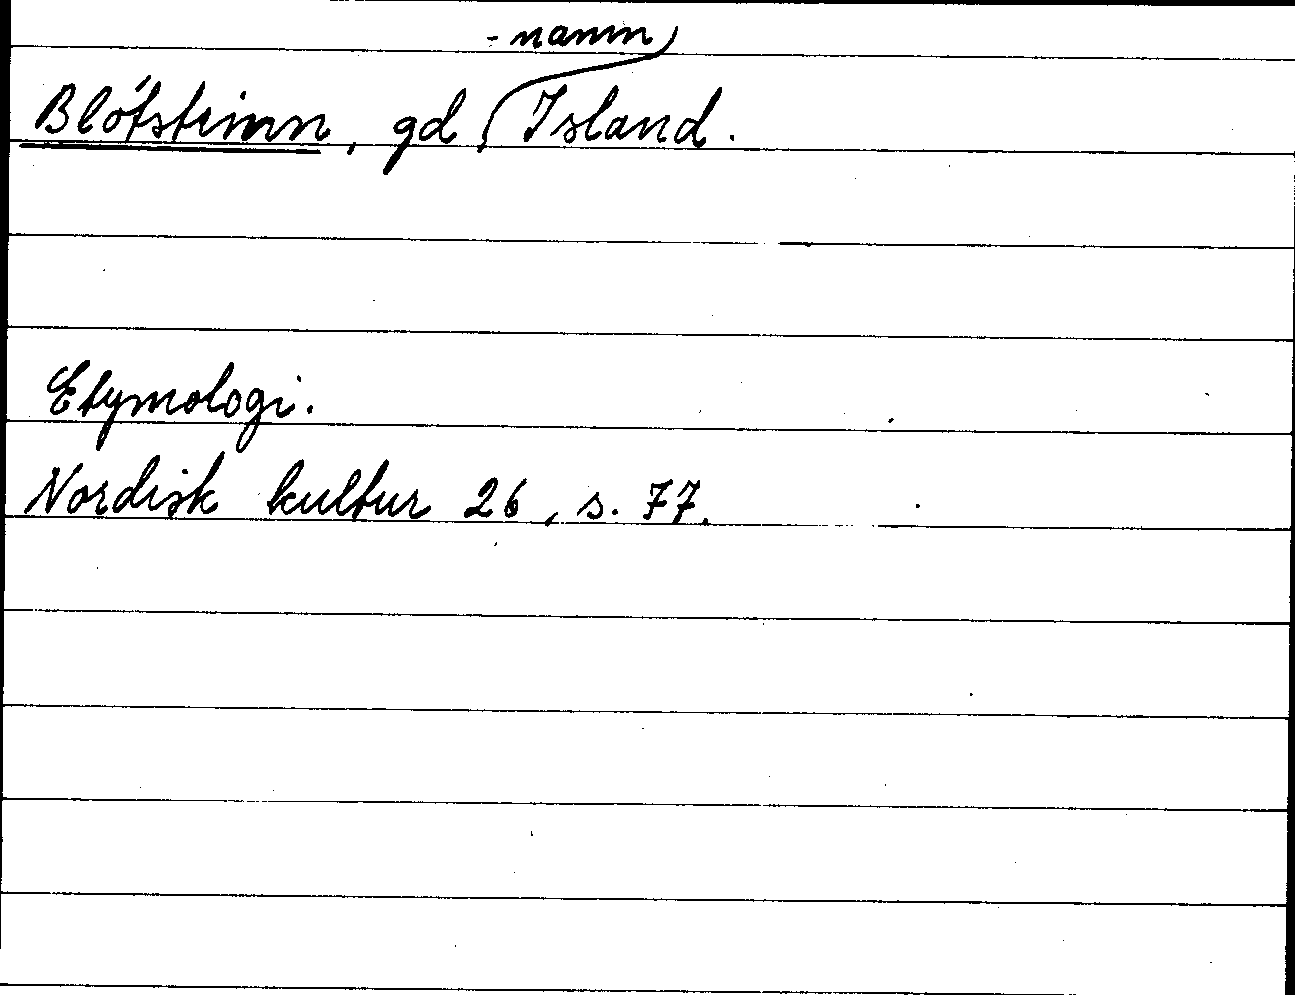 -namn
Blótsteinn, gd Island.
Etymologi.
Nordisk kultur 26, s. 77.